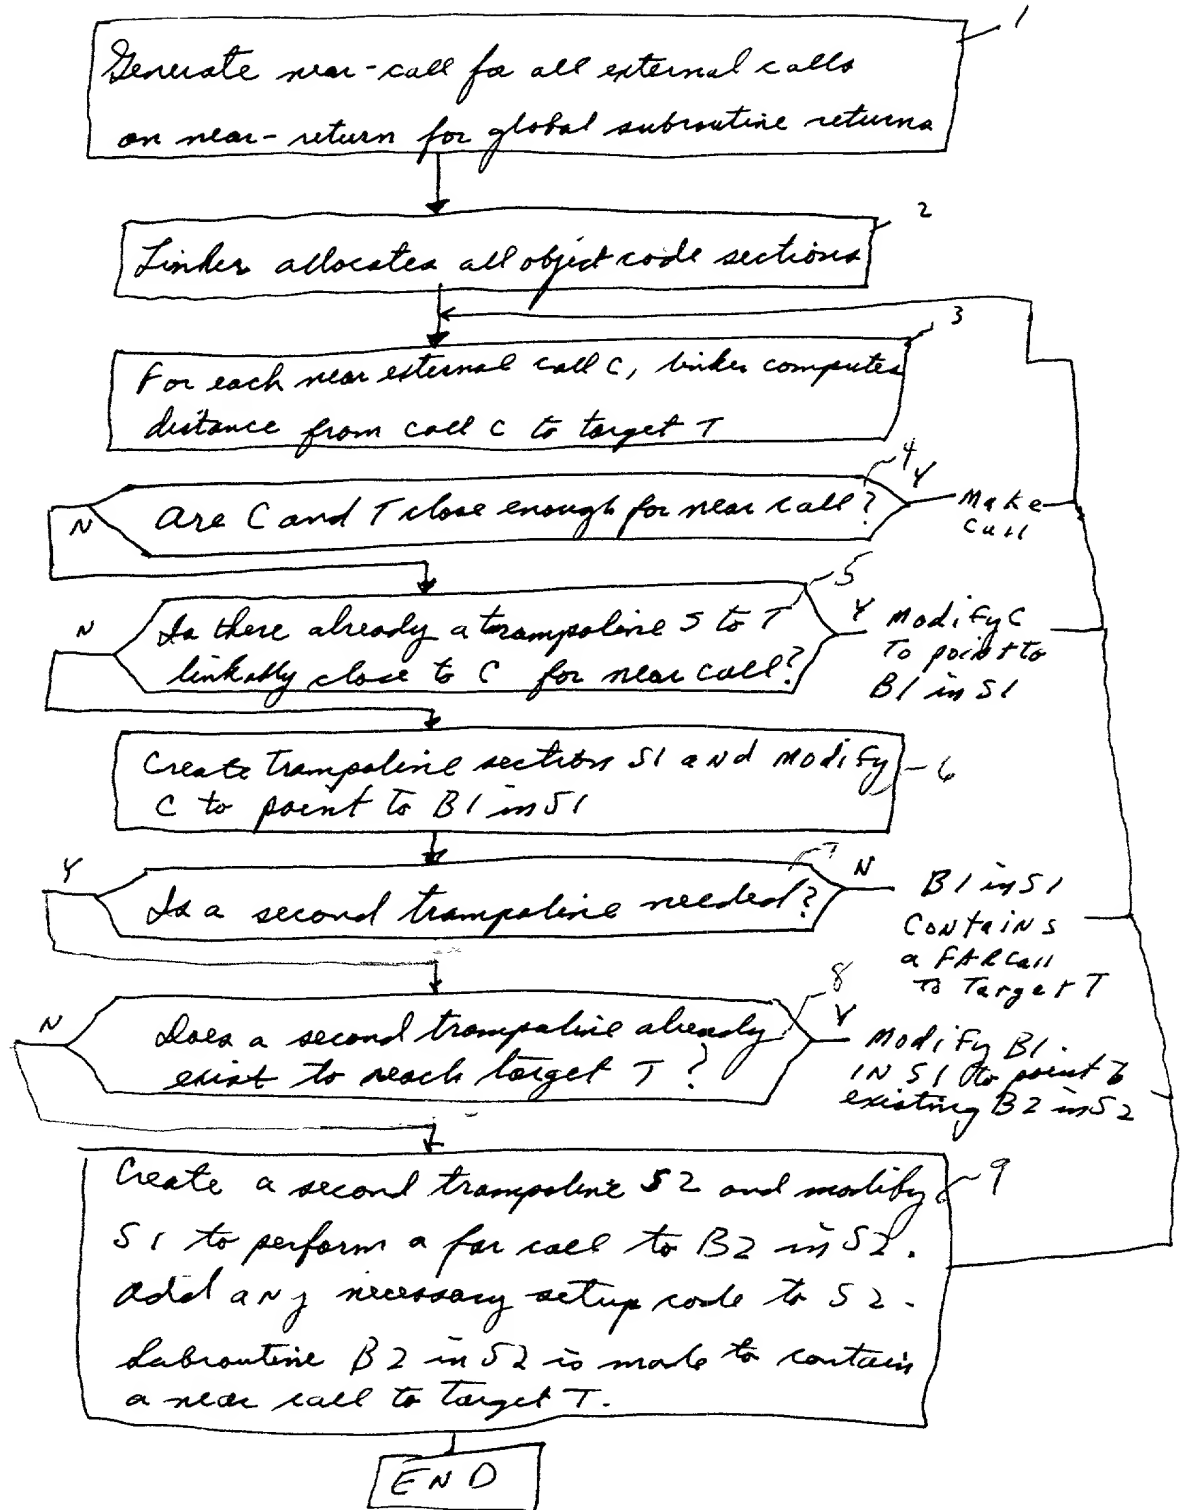 1
Generate near-call for all external calls
on near-return for global subroutine returns
2
Linker allocates all object code sections
3
For each near external call C, linker computes
distance from call C to target T
4
Are C and T close enough for near call?
Y
Make
Call
N
5
Is there already a trampoline S to T
linkably close to C for near call?
Y
Modify C
To point to
B1 in S1
N
Create trampoline section S1 and Modify
C to point to B1 in S1
6
7
Is a second trampoline needed?
Y
N
B1 in S1
Contains
a FAR Call
To Target T
8
Does a second trampoline already
exist to reach target T?
N
Y
Modify B1
IN S1 to point to
existing B2 in S2
9
Create a second trampoline S2 and modify
S1 to perform a far call to B2 in S2.
Add any necessary setup code to S2.
Subroutine B2 in S2 is made to contain
a near call to target T.
END